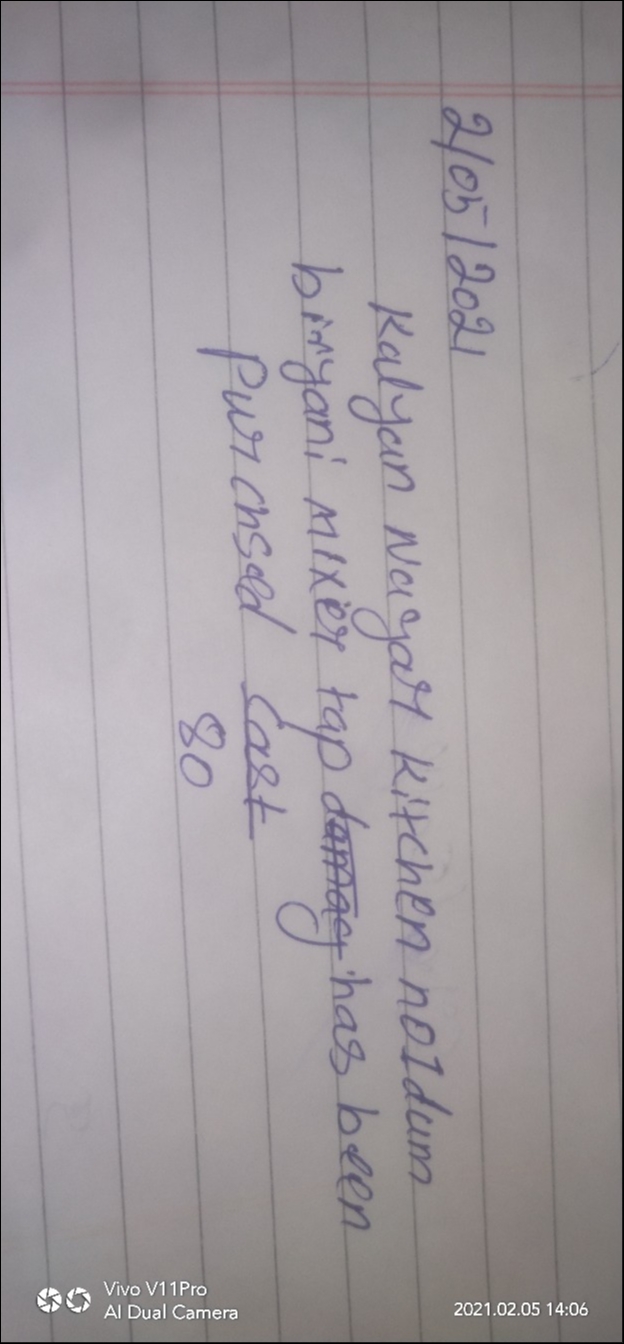 2/05/2021
Kalyan Nagar Kitchen no1dum
biryani mixer tap damag has been
Purchsed Cast
80
Vivo V11Pro
AI Dual Camera
2021.02.05 14:06